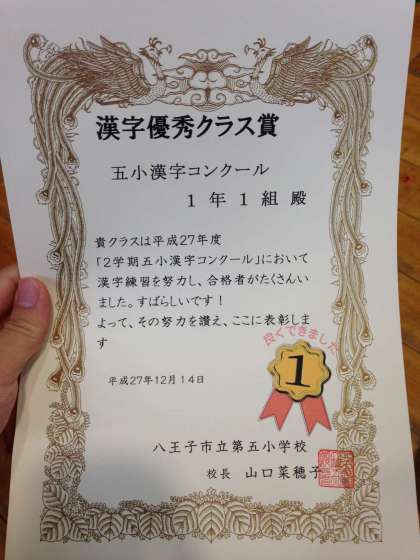 漢字優秀クラス賞
五小漢字コンクール
1年1組 殿
貴クラスは平成27年度
「2学期五小漢字コンクール」において
漢字練習を努力し、合格者がたくさんい
ました。すばらしいです！
よって、その努力を讃え、ここに表彰しま
す
良くできました
1
平成27年12月14日
八王子市立第五小学校
校長 山口菜穂子